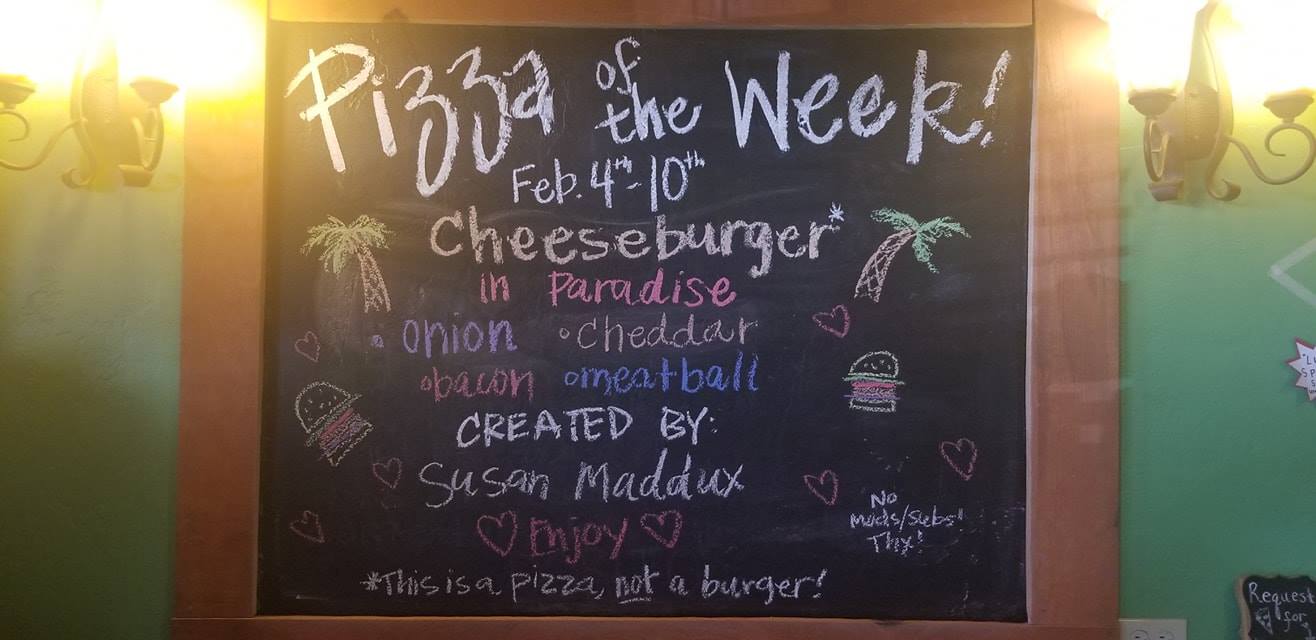 Pizza of the Week!
Feb. 4th-10th
Cheeseburger*
in Paradise
• onion • cheddar
• bacon • meatball
CREATED BY:
Susan Maddux
Enjoy
No
Mods/Subs!
Thx!
*This is a pizza, not a burger!
Request
for